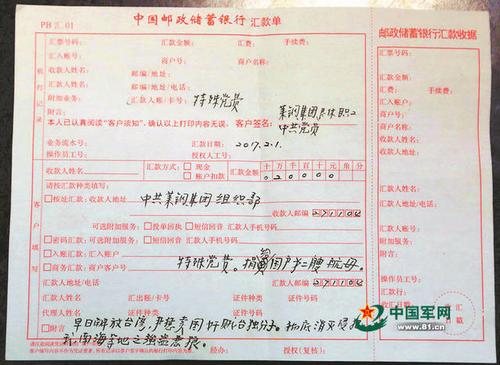 PB汇01
中国邮政储蓄银行 汇款单
汇票号码: 汇款金额: 汇费: 手续费:
汇入账号: 商户号: 商户名称:
收款人姓名: 邮编/地址:
汇款人姓名: 邮编/地址/电话:
附加业务: 汇款人账/卡/号: 特殊党费
附言: 莱钢集团退休职工
本人已认真阅读“客户须知”,确认以上打印内容无误。 客户签名: 中共党员
业务流水号: 汇款日期: 2017.2.1.
操作员工号: 授权人工号:
收款人姓名: 汇款方式: 现金 账户扣款 汇款金额 十万千百十元角分
020000
请按汇款种类填写:
按址汇款: 收款人地址 中共莱钢集团组织部
收款人邮编 271104
可选附加服务: 投单回执 短信回音 汇款人手机号码
密码汇款: 可选附加服务: 短信回音 汇款人手机号码
入账汇款: 汇入账户
商务汇款: 商户客户号 特殊党费。捐给国产第二艘航母。
汇款人姓名 汇款人邮编 271104
汇款人地址
汇款人姓名 汇出账/卡号 证件种类 证件号码
代理人姓名 证件种类 证件号码
附言
早日解放台湾,严惩卖国奸贼台独分子。彻底消灭侵占
我南海等地之强盗恶狼。
经办: 授权(复核):
邮政储蓄银行汇款收据
汇票号码:
汇款金额:
汇费:
手续费:
汇入账户:
收款人姓名:
汇款人姓名:
附加业务:
操作员工号:
汇款日期:
中国军网
www.81.cn